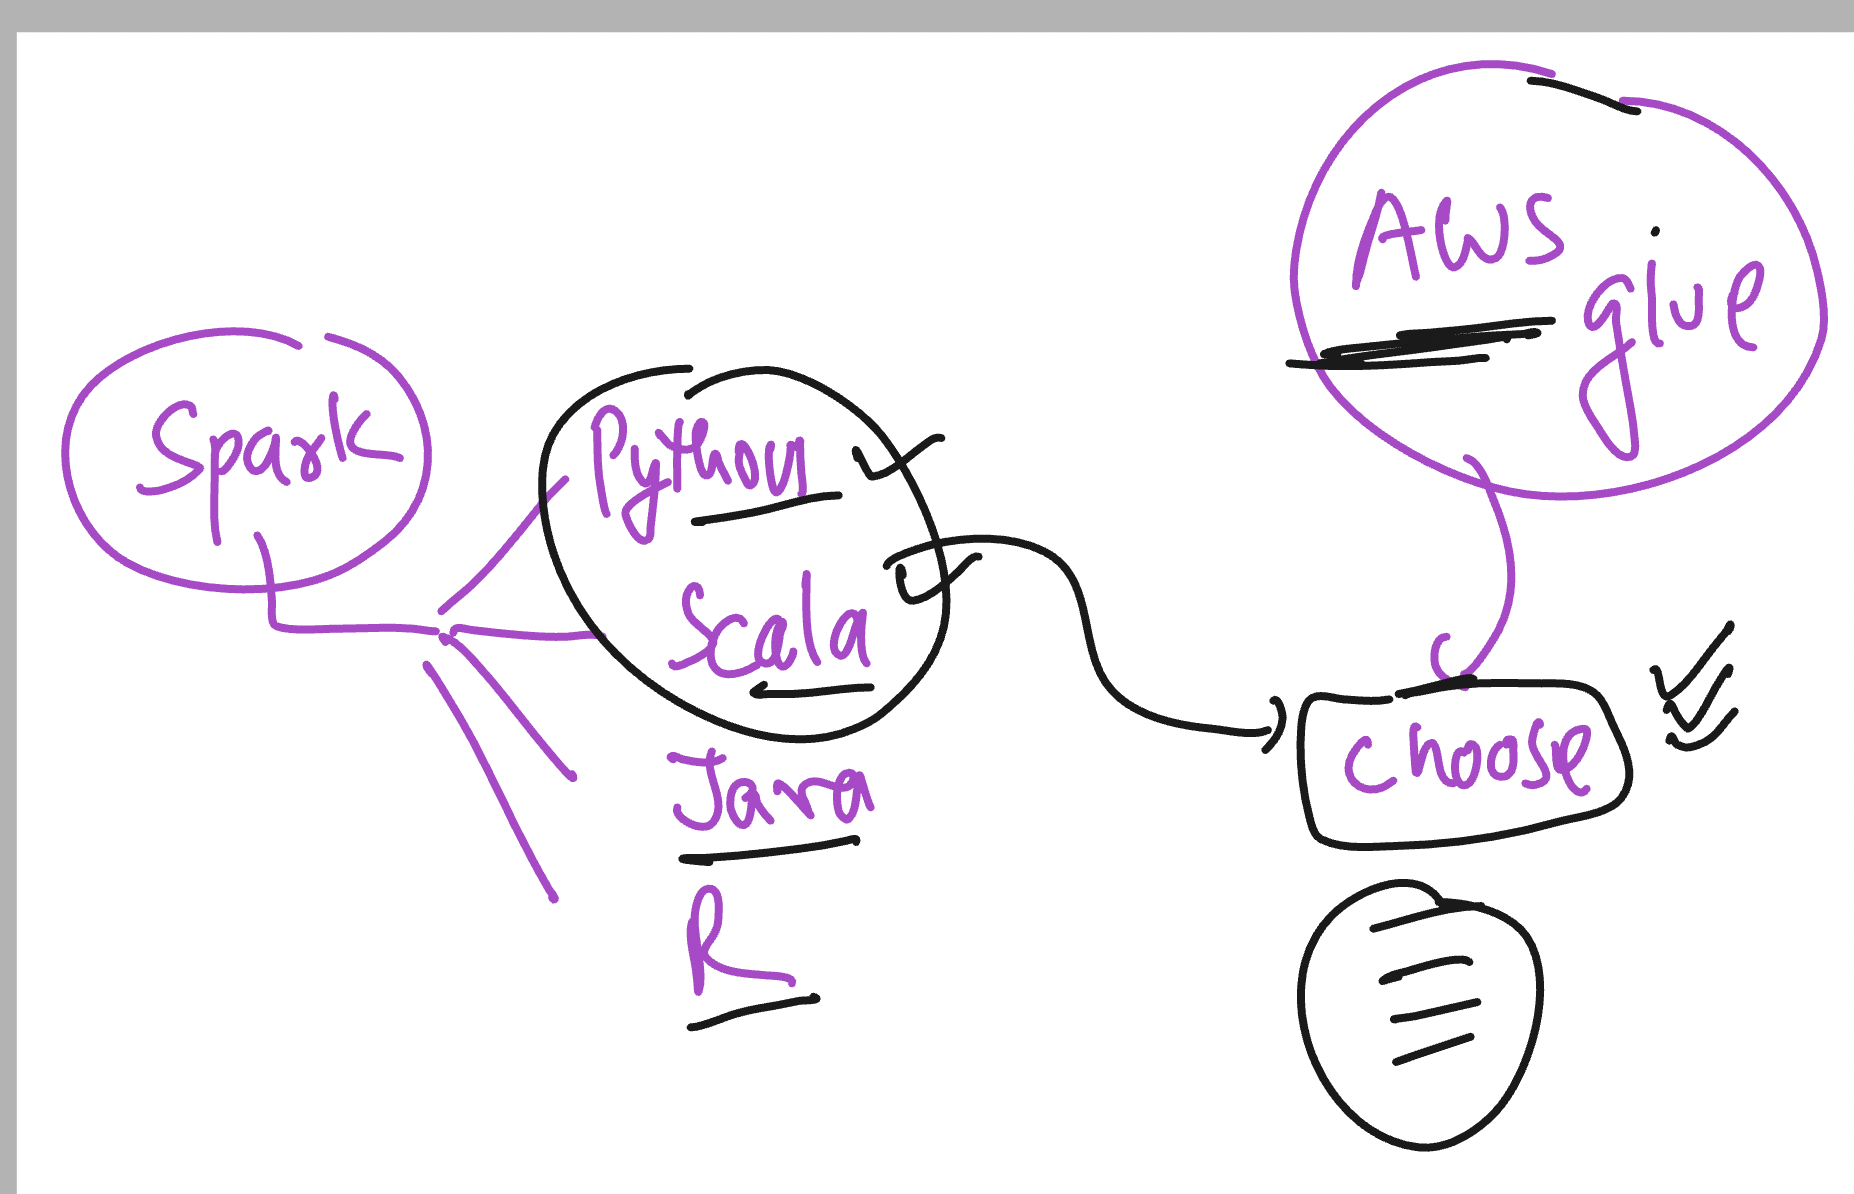 Spark
Python
Scala
Java
R
AWS
glue
choose